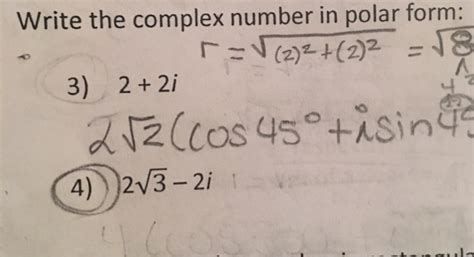 Write the complex number in polar form:
r = √(2)² + (2)² = √8
3) 2 + 2i
4 2
2√2 (cos 45° + i sin 45
4) 2√3 − 2i
4 (cos